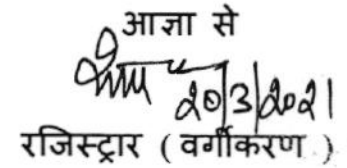 आज्ञा से
20/3/2021
रजिस्ट्रार ( वर्गीकरण )